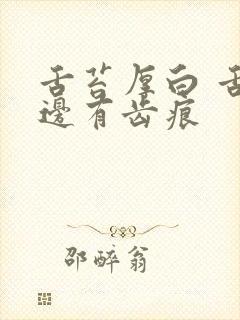 舌苔厚白 舌
邊有齿痕
邵醉翁